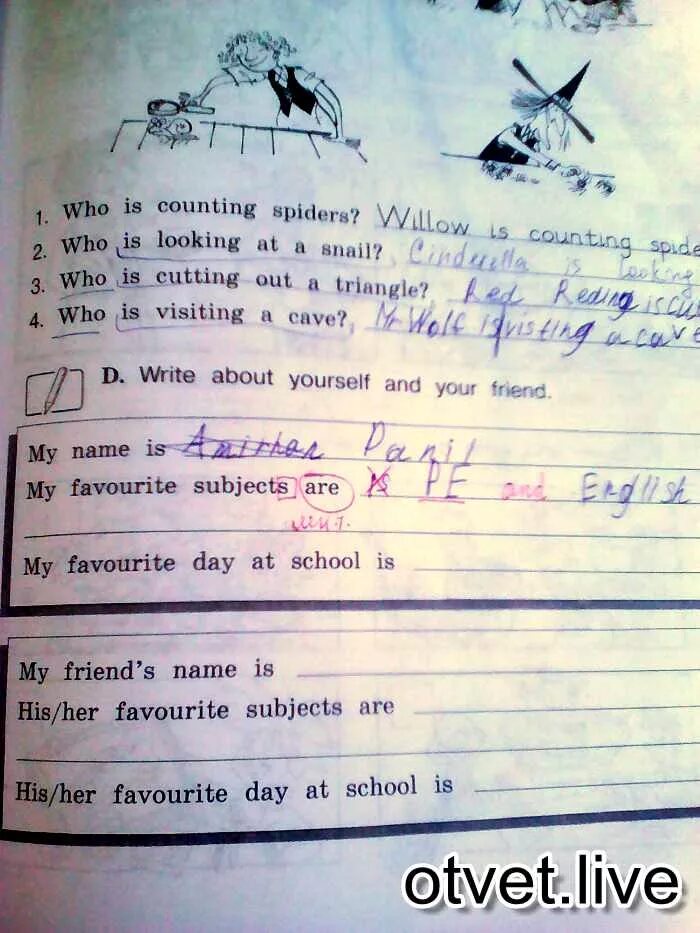 1. Who is counting spiders? Willow is counting spide
2. Who is looking at a snail? Cinderella is looking
3. Who is cutting out a triangle? Red Reding is cu
4. Who is visiting a cave? Mr Wolf is visting a cave
D. Write about yourself and your friend.
My name is Danil
My favourite subjects are is PE and English
My favourite day at school is
My friend's name is
His/her favourite subjects are
His/her favourite day at school is
otvet.live